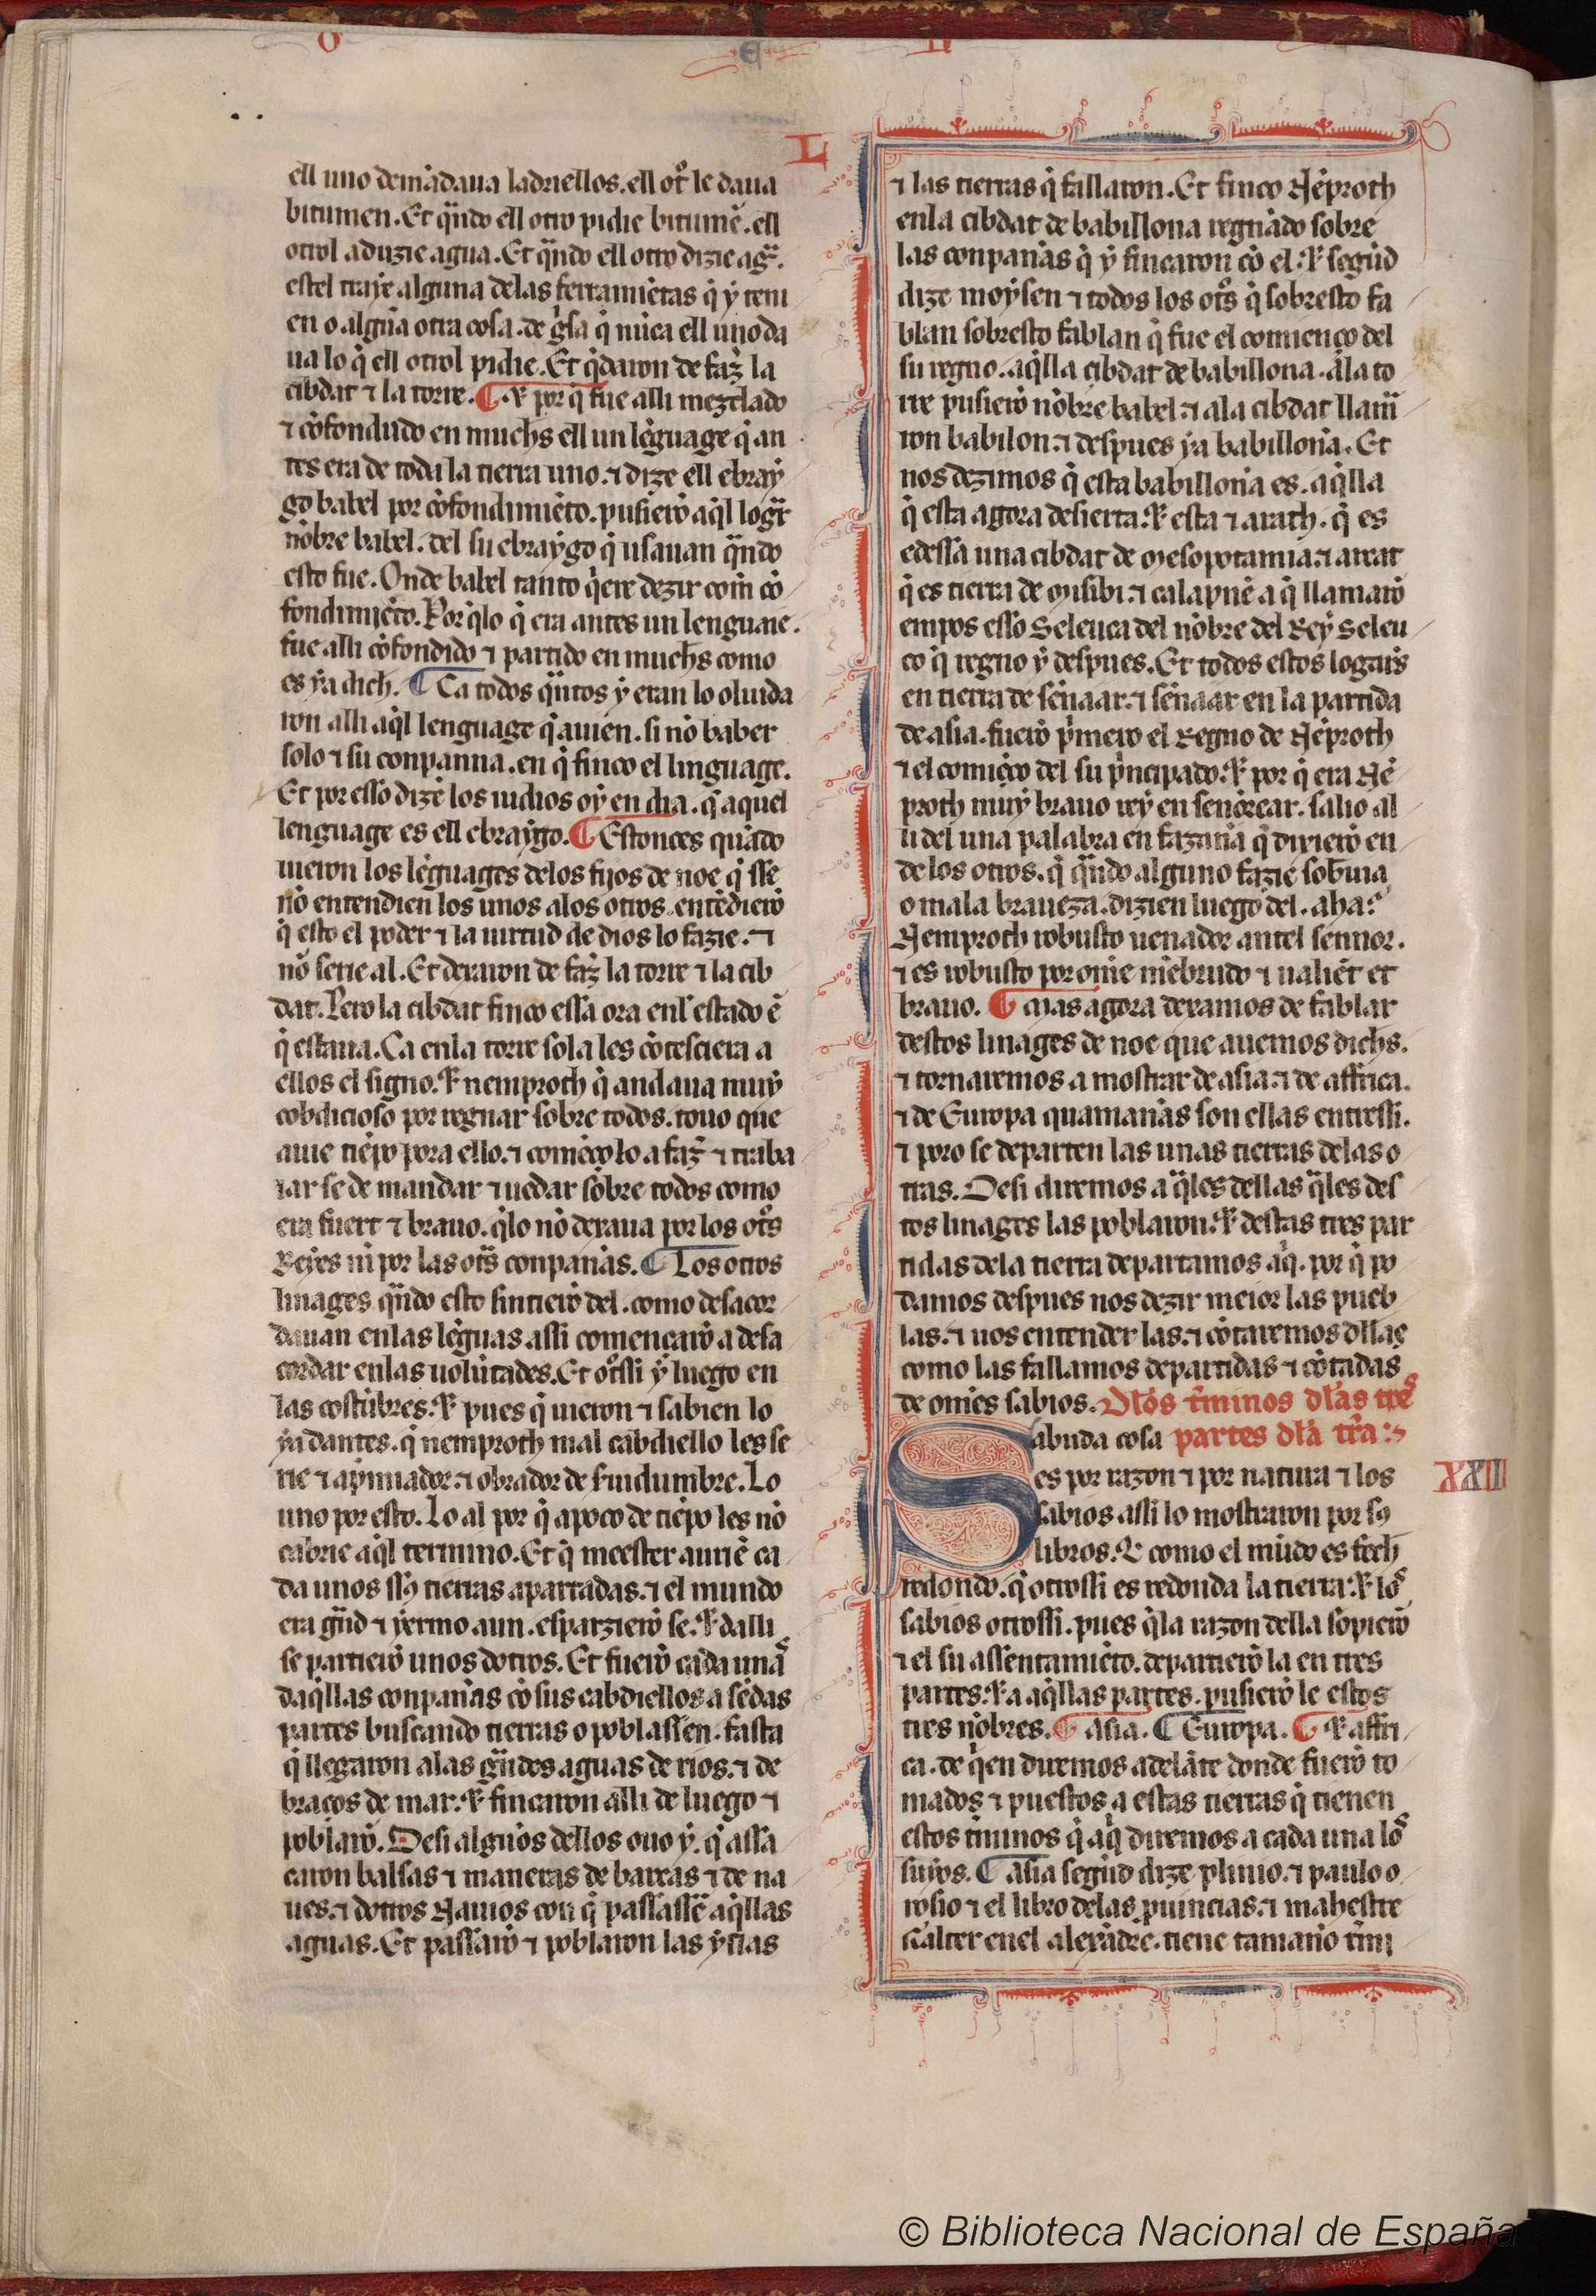 ell uno demādaua ladriellos. ell otͦ le daua
bitumen. Et qͣndo ell otro pidie bitumē. ell
otrol aduzie agua. Et qͣndo ell otro dizie agͣ.
estel traye alguna delas ferramiētas q̇ ẏ teni
en o algūa otra cosa. de gͥsa q̇ nūca ell uno da
ua lo q̇ ell otrol pidie. Et q̇daron de faz̄ la
cibdat ⁊ la torre. ¶ ⁊ por q̇ fue alli mezclado
⁊ cōfondudo en much̄s ell un lēguage q̇ an
tes era de toda la tierra uno. ⁊ dize ell ebraẏ
go babel por cōfondimiēto. pusierō aq̇l logͣr
nōbre babel. del su ebraẏgo q̇ usauan qͣndo
esto fue. Onde babel tanto q̇ere dezir com̄ cō
fondimiēto. Por q̇lo q̇ era antes un lenguaie.
fue alli cōfondido ⁊ partido en much̄s como
es ẏa dich̄. ¶ Ca todos qͣntos ẏ eran lo oluida
ron alli aq̇l lenguage q̇ auien. si nō baber
solo ⁊ su conpanna. en q̇ finco el linguage.
Et por esso dizē los iudios oẏ en dia. q̇ aquel
lenguage es ell ebraẏgo. ¶ Estonces quādo
uieron los lēguages delos fijos de noe q̇ sse
nō entendien los unos alos otros. entēdierō
q̇ esto el poder ⁊ la uirtud de dios lo fazie. ⁊
nō serie al. Et dexaron de faz̄ la torre ⁊ la cib
dat. Pero la cibdat finco essa ora enl estado ē
q̇ estaua. Ca enla torre sola les cōtesciera a
ellos el signo. ⁊ nemproth q̇ andaua muẏ
cobdicioso por regnar sobre todos. touo que
auie tiēpo pora ello. ⁊ comēço lo a faz̄ ⁊ traba
iar se de mandar ⁊ uedar sobre todos como
era fuert ⁊ brauo. q̇lo nō dexaua por los otͦs
Reẏes ni por las otͣs conpan̄as. ¶ Los otros
linages qͣndo esto sintierō del. como desacor
dauan enlas lēguas assi començarō a desa
cordar enlas uolūtades. Et otͦssi ẏ luego en
las costūbres. ⁊ pues q̇ uieron ⁊ sabien lo
ẏa dantes. q̇ nemproth mal cabdiello les se
rie ⁊ ap̄miador. ⁊ obrador de siudumbre. Lo
uno por esto. Lo al por q̇ apoco de tiēpo les nō
cabrie aq̇l termino. Et q̇ meester auriē ca
da unos ssꝯ tierras apartadas. ⁊ el mundo
era gͣnd ⁊ ẏermo aun. esparzierō se. ⁊ dalli
se partierō unos dotros. Et fuerō cada unaˢ
daq̇llas conpan̄as cō sus cabdiellos a sēdas
partes buscando tierras o poblassen. fasta
q̇ llegaron alas gͣndes aguas de rios. ⁊ de
braços de mar. ⁊ fincaron alli de luego ⁊
poblarō. Desi algunōs dellos ouo ẏ. q̇ assa
caron balsas ⁊ maneras de barcas ⁊ de na
ues. ⁊ dotros Nauios con q̇ passassē aq̇llas
aguas. Et passarō ⁊ poblaron las ẏslas
L
⁊ las tierras q̇ fallaron. Et finco Nēproth
enla cibdat de babillona regnādo sobre
las conpan̄as q̇ ẏ fincaron cō el. ⁊ segūd
dize moẏsen ⁊ todos los otͦs q̇ sobresto fa
blan sobresto fablan q̇ fue el comienço del
su regno. aq̇lla cibdat de babillona. ala to
rre pusierō nōbre babel. ⁊ ala cibdat llama
ron babilon. ⁊ despues ẏa babillonia. Et
nos dezimos q̇ esta babillonia es. aq̇lla
q̇ esta agora desierta. ⁊ esta ⁊ arath. q̇ es
edessa una cibdat de mesopotamia. ⁊ arcat
q̇ es tierra de nisibi. ⁊ calapnē a q̇ llamarō
empos esso Seleuca del nōbre del Reẏ Seleu
co q̇ regno ẏ despues. Et todos estos logars
en tierra de sēnaar. ⁊ sēnaar en la partida
de asia. fuerō pͥmero el Regno de Nēproth
⁊ el comiēço del su pͥncipado. ⁊ por q̇ era Nē
proth muẏ brauo reẏ en senōrear. salio al
li del una palabra en fazan̄a q̇ dixierō en
de los otros. q̇ qͣndo alguno fazie sob̄uia
o mala braueza. dizien luego del. aha.
Nemproth robusto uenador antel sennor.
⁊ es robusto por omē mēbrudo ⁊ ualiēt et
brauo. ¶ Mas agora dexamos de fablar
destos linages de noe que auemos dich̄s.
⁊ tornaremos a mostrar de asia. ⁊ de affrica.
⁊ de Europa quaman̄as son ellas entressi.
⁊ poro se departen las unas tierras delas o
tras. Desi diremos a qͣles dellas qͣles des
tos linages las poblaron. ⁊ destas tres par
tidas dela tierra departimos aq̇. por q̇ po
damos despues nos dezir meior las pueb
las. ⁊ uos entender las. ⁊ cōtaremos dllas
como las fallamos departidas ⁊ cōtadas
de omēs sabios. Dlōs t̄minos dlas treˢ
partes dla tr̄a:
XXII
Sabuda cosa
es por razon ⁊ por natura ⁊ los
sabios assi lo mostraron por sꝯ
libros. ⁊ como el mūdo es fech̄
redondo. q̇ otrossi es redonda la tierra. ⁊ loˢ
sabios otrossi. pues q̇la razon della sopierō
⁊ el su assentamiēto. departierō la en tres
partes. ⁊ a aq̇llas partes. pusierō le estos
tres nōbres. ¶ asia. ¶ Europa. ¶ ⁊ affri
ca. de q̇en diremos adelāte donde fuerō to
mados ⁊ puestos a estas tierras q̇ tienen
estos t̄minos q̇ aq̇ diremos a cada una loˢ
suẏos. ¶ asia segūd dize plinio. ⁊ paulo o
rosio ⁊ el libro delas puincias. ⁊ mahestre
Galter enel alexādre. tiene taman̄o t̄mi
© Biblioteca Nacional de España